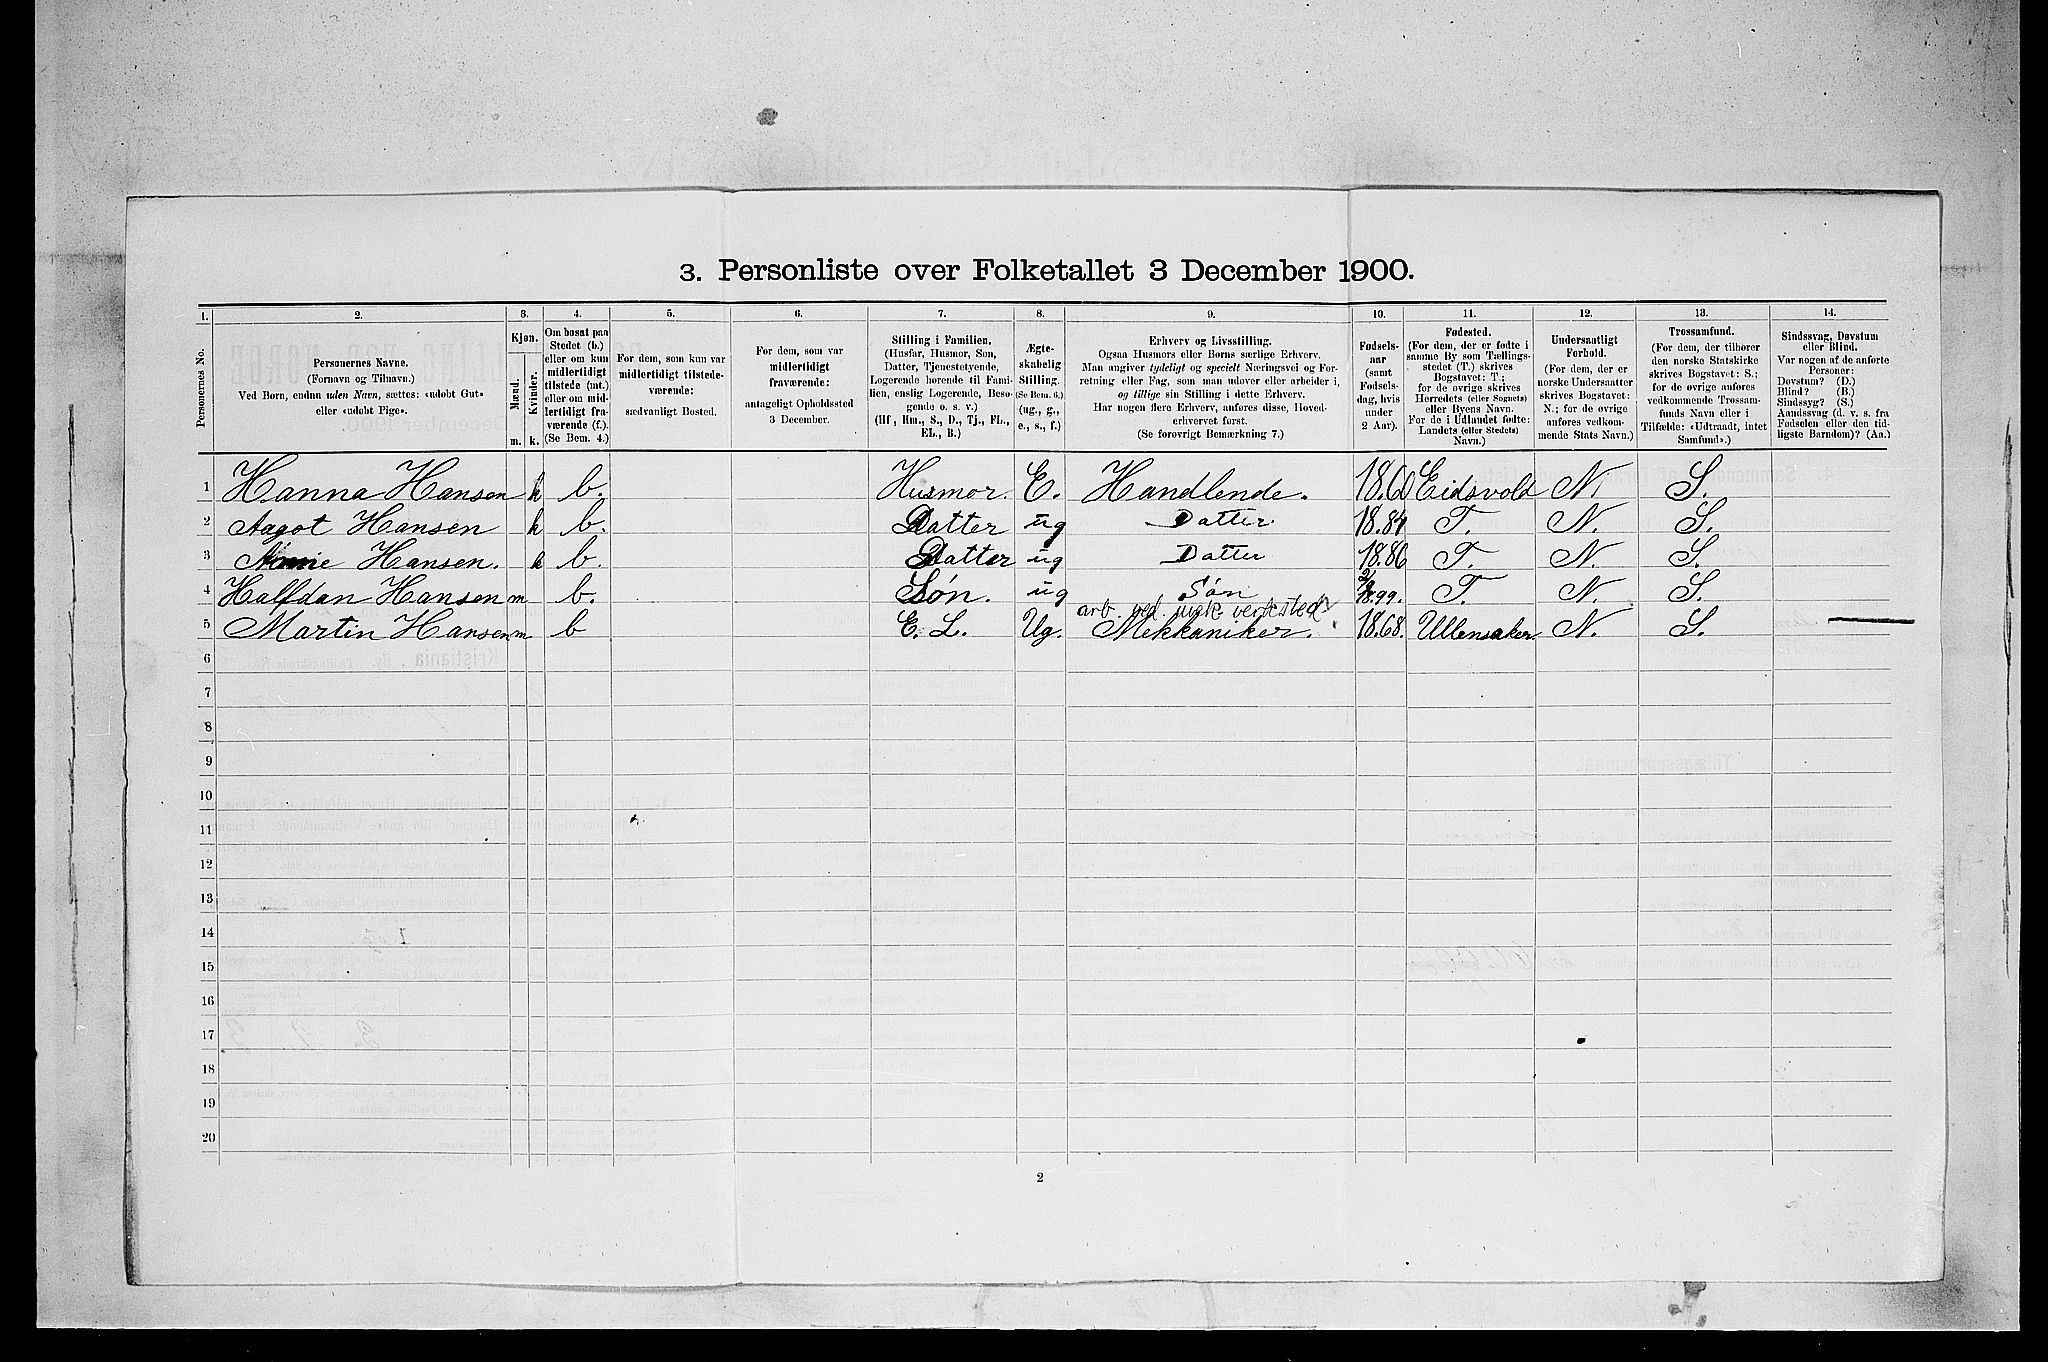 3. Personliste over Folketallet 3 December 1900.
1. 2. 3. 4. 5. 6. 7. 8. 9. 10. 11. 12. 13. 14.
Personernes No.
Personernes Navne.
(Fornavn og Tilnavn.)
Ved Børn, endnu uden Navn, sættes: «udøbt Gut»
eller «udøbt Pige».
Kjøn.
Mænd.
Kvinder.
m. k.
Om bosat paa
Stedet (b.)
eller om kun
midlertidigt
tilstede (mt.)
eller om mid-
lertidigt fra-
værende (f.).
(Se Bem. 4.)
For dem, som kun var
midlertidigt tilstede-
værende:
sædvanligt Bosted.
For dem, som var
midlertidigt
fraværende:
antageligt Opholdssted
3 December.
Stilling i Familien.
(Husfar, Husmor, Søn,
Datter, Tjenestetyende,
Logerende hørende til Fami-
lien, enslig Logerende, Besø-
gende o. s. v.)
(Hf, Hm., S., D., Tj., FL.,
EL., B.)
Ægte-
skabelig
Stilling.
(Se Bem. 6.)
(ug., g.,
e., s., f.)
Erhverv og Livsstilling.
Ogsaa Husmors eller Børns særlige Erhverv.
Man angiver tydeligt og specielt Næringsvei og For-
retning eller Fag, som man udøver eller arbeider i,
og tillige sin Stilling i dette Erhverv.
Har nogen flere Erhverv, anføres disse, Hoved-
erhvervet først.
(Se forøvrigt Bemærkning 7.)
Fødsels-
aar
(samt
Fødsels-
dag, hvis
under
2 Aar).
Fødested.
(For dem, der er fødte i
samme By som Tællings-
stedet (T.) skrives
Bogstavet: T.;
for de øvrige skrives
Herredets (eller Sognets)
eller Byens Navn.
For de i Udlandet fødte:
Landets (eller Stedets)
Navn.)
Undersaatligt
Forhold.
(For dem, der er
norske Undersaatter
skrives Bogstavet:
N.; for de øvrige
anføres vedkom-
mende Stats Navn.)
Trossamfund.
(For dem, der tilhører
den norske Statskirke
skrives Bogstavet: S.;
for de øvrige anføres
vedkommende Trossam-
funds Navn eller i
Tilfælde: «Udtraadt, intet
Samfund».)
Sindssvag, Døvstum
eller Blind.
Var nogen af de anførte
Personer:
Døvstum? (D.)
Blind? (B.)
Sindssyg? (S.)
Aandssvag (d. v. s. fra
Fødselen eller den tid-
ligste Barndom)? (Aa.)
1 Hanna Hansen k b. Husmor. E. Handlende. 1860 Eidsvold N. S.
2 Aagot Hansen k b. Datter ug Datter 18.84 T. N. S.
3 Hansen. k b. Datter ug Datter 18.86 T. N. S.
4 Halfdan Hansen m b. Søn. ug Søn 18.99. T. N. S.
arb. ved mek. verksted
5 Martin Hansen m. b E. L. Ug. Mekkaniker. 18.68. Ullensaker N. S.
6
7
8
9
10
11
12
13
14
15
16
17
18
19
20
2